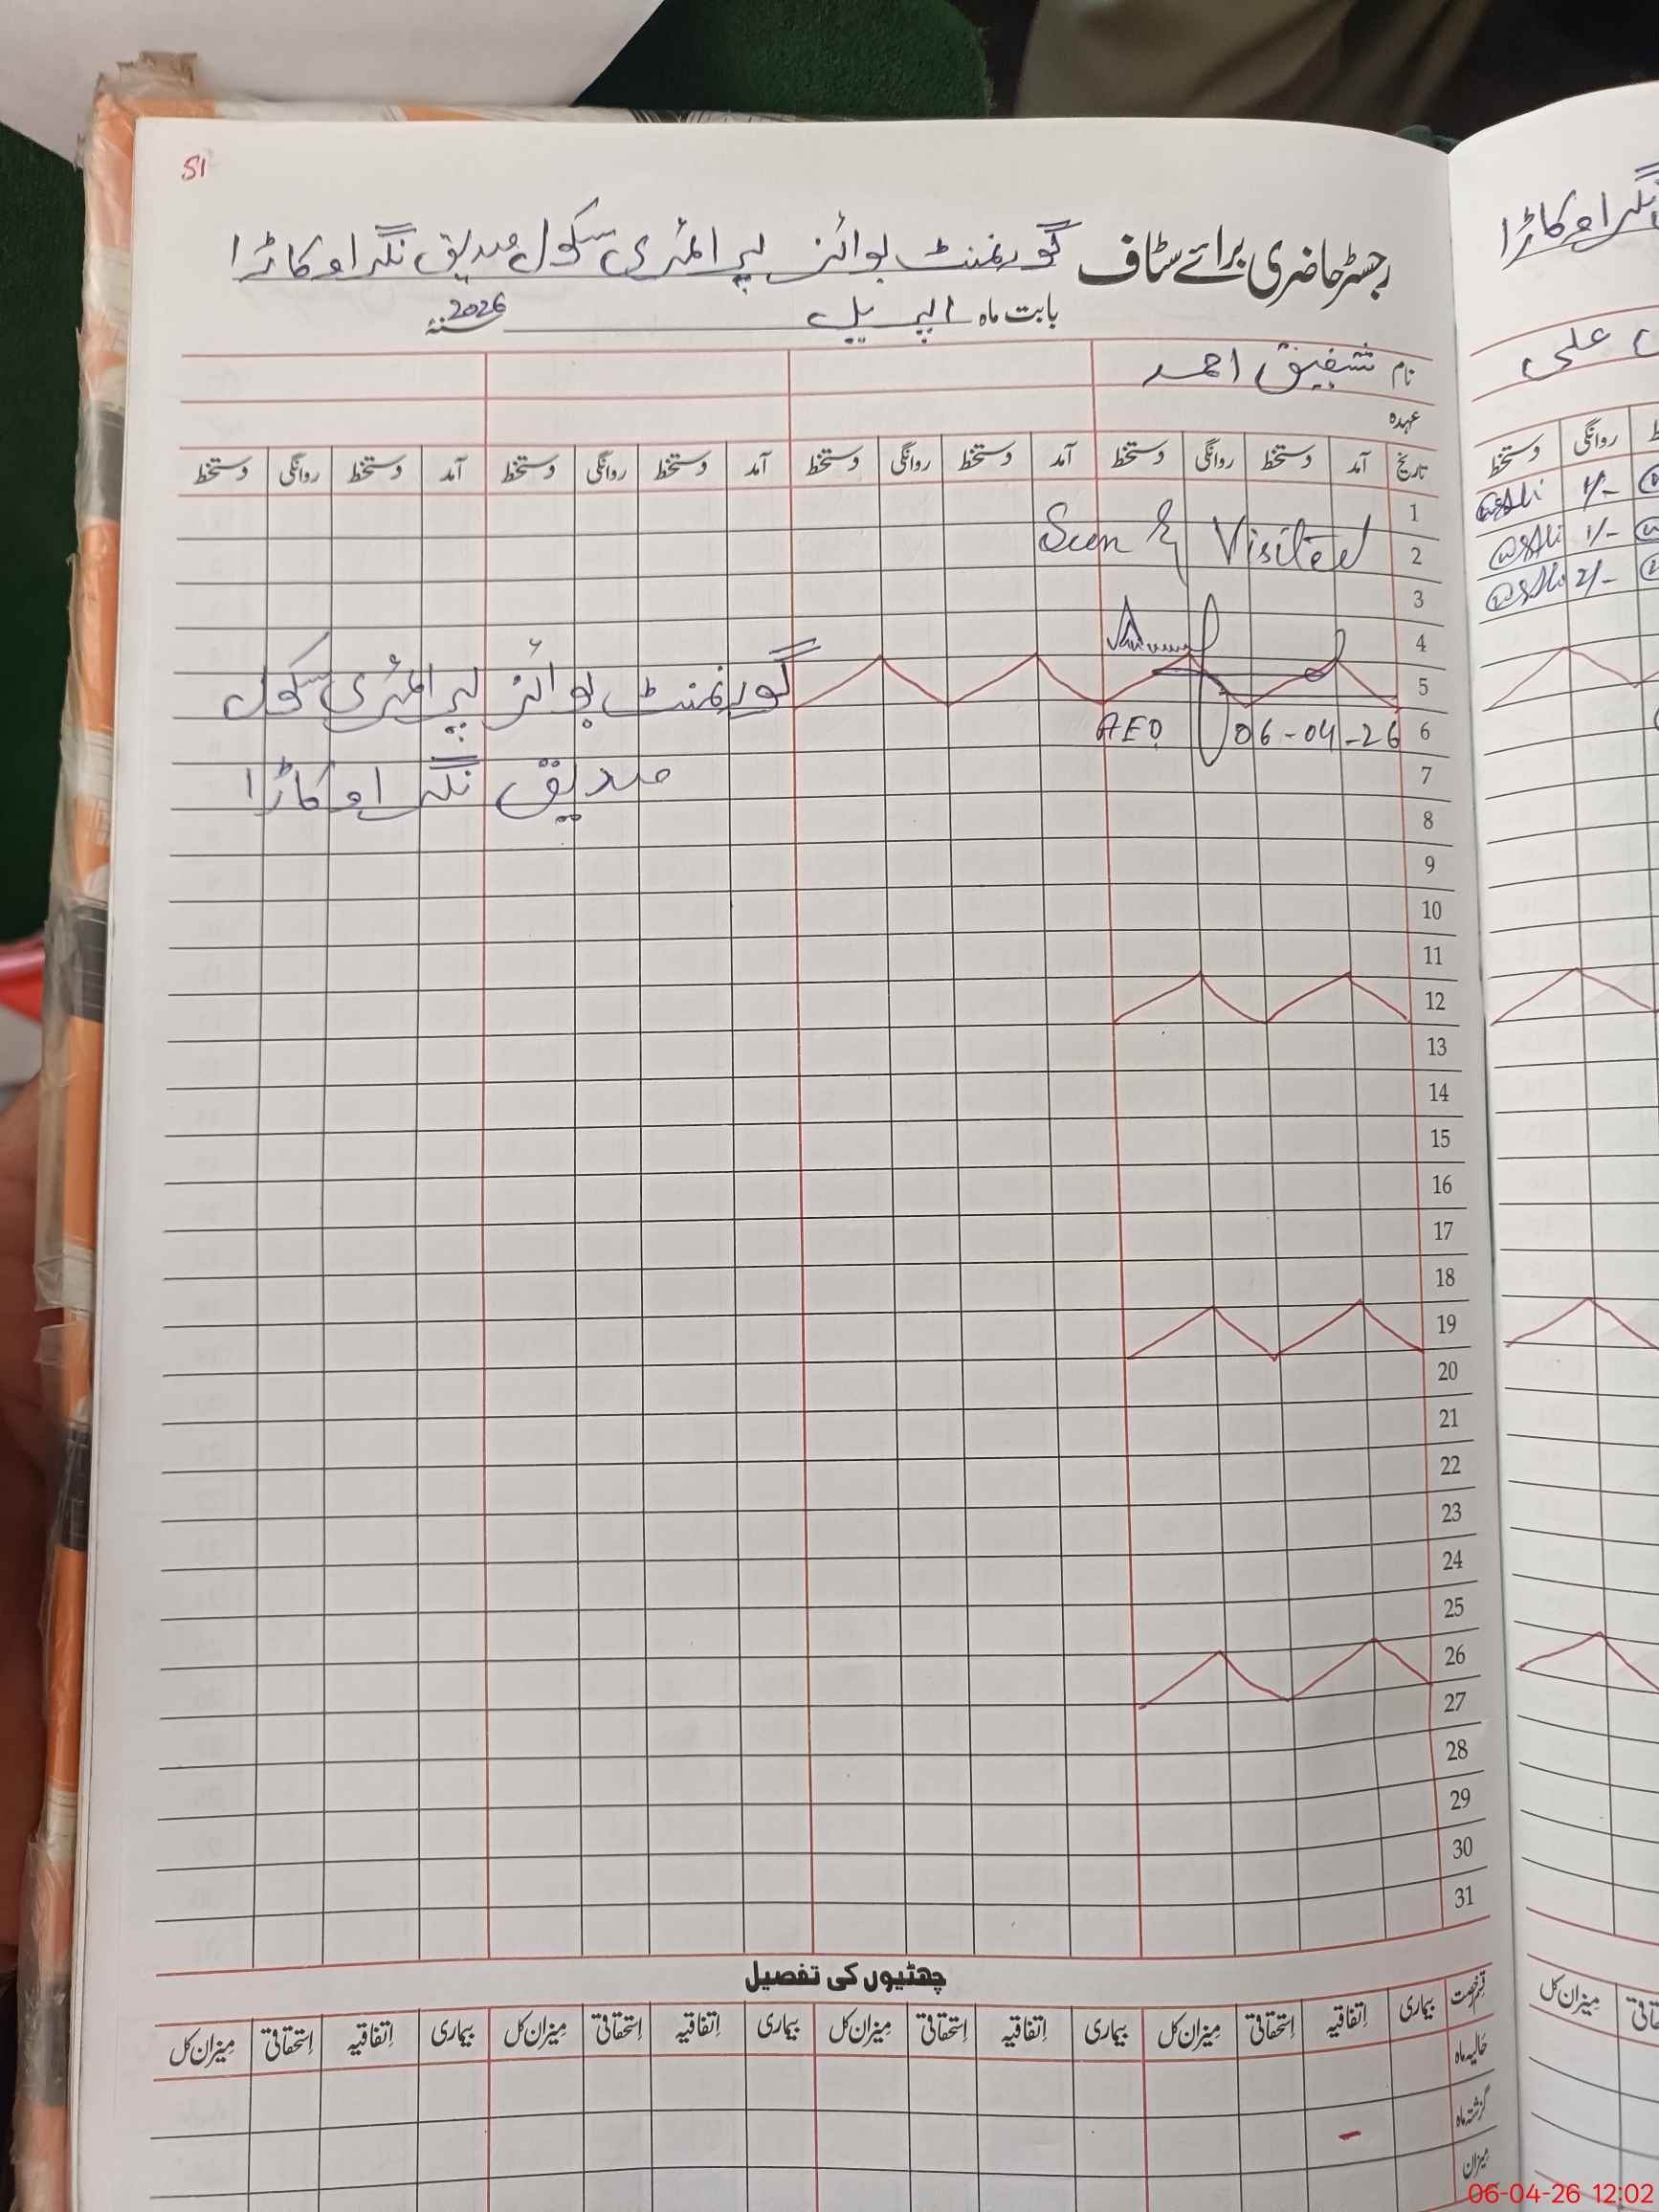 51
رجسٹر حاضری برائے سٹاف گورنمنٹ بوائز پرائمری سکول صدیق نگر اوکاڑا
بابت ماہ اپریل 2026 سنہ
نام شفیق احمد
عہدہ
تاریخ آمد دستخط روانگی دستخط آمد دستخط روانگی دستخط آمد دستخط روانگی دستخط آمد دستخط روانگی دستخط
1
Seen & Visited
2
3
4
5
گورنمنٹ بوائز پرائمری سکول
6
AEO 06-04-26
7
صدیق نگر اوکاڑا
8
9
10
11
12
13
14
15
16
17
18
19
20
21
22
23
24
25
26
27
28
29
30
31
چھٹیوں کی تفصیل
قسم رخصت بیماری اتفاقیہ استحقاقی میزان کل بیماری اتفاقیہ استحقاقی میزان کل بیماری اتفاقیہ استحقاقی میزان کل بیماری اتفاقیہ استحقاقی میزان کل
حالیہ ماہ
گزشتہ ماہ -
میزان
نگر اوکاڑا
علی
روانگی دستخط
1/-
1/-
2/-
میزان کل
06-04-26 12:02